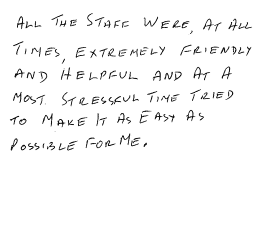 ALL THE STAFF WERE, AT ALL
TIMES, EXTREMELY FRIENDLY
AND HELPFUL AND AT A
MOST STRESSFUL TIME TRIED
TO MAKE IT AS EASY AS
POSSIBLE FOR ME.